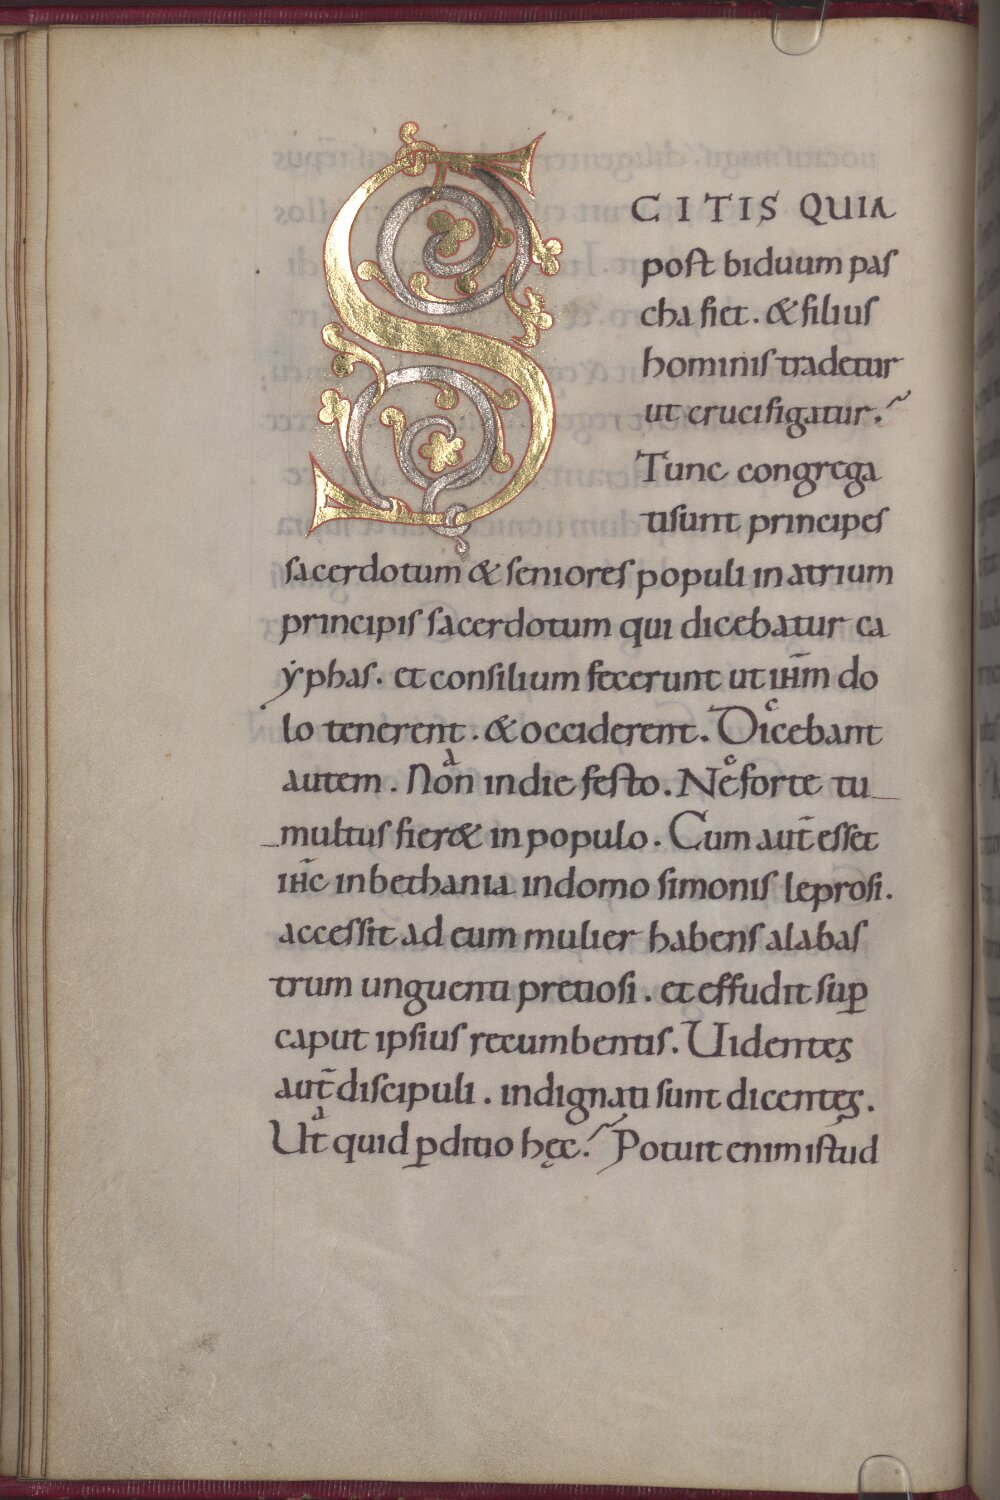 SCITIS QUIA
post biduum pas
cha fiet. & filius
hominis tradetur
ut crucifigatur.
Tunc congrega
ti sunt principes
sacerdotum & seniores populi in atrium
principis sacerdotum qui dicebatur ca
ẏphas. et consilium fecerunt ut ihm̄ do
lo tenerent. & occiderent. Dicebant
autem. Non in die festo. Ne forte tu
multus fier& in populo. Cum aut̄ esset
ihc̄ in bethania in domo simonis leprosi.
accessit ad eum mulier habens alabas
trum unguenti pretiosi. et effudit sup̱
caput ipsius recumbentis. Uidentes
aut̄ discipuli. indignati sunt dicentes.
Ut quid p̱ditio hęc. Potuit enim istud